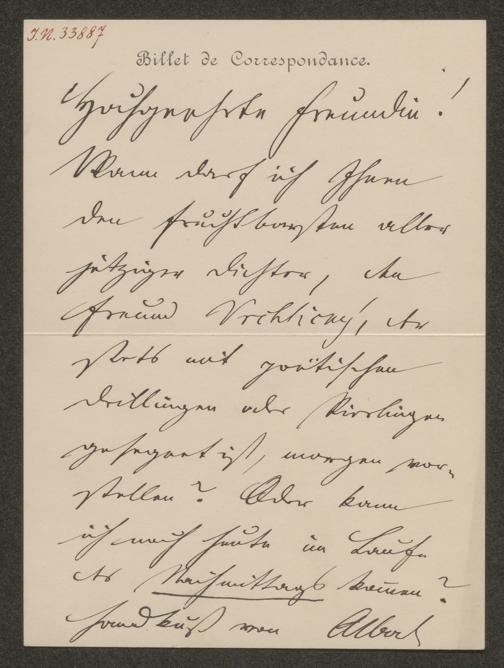 J.N. 33887
Billet de Correspondance.
Hochgeehrte Freundin!
Wann darf ich Ihnen
den fruchtbarsten aller
jetzigen Dichter, den
Freund Vrchlicky, der
stets mit poëtischen
Drillingen oder Vierlingen
gesegnet ist, morgen vor-
stellen? Oder kann
ich noch heute im Laufe
des Nachmittags kommen?
Handkuß von Albert